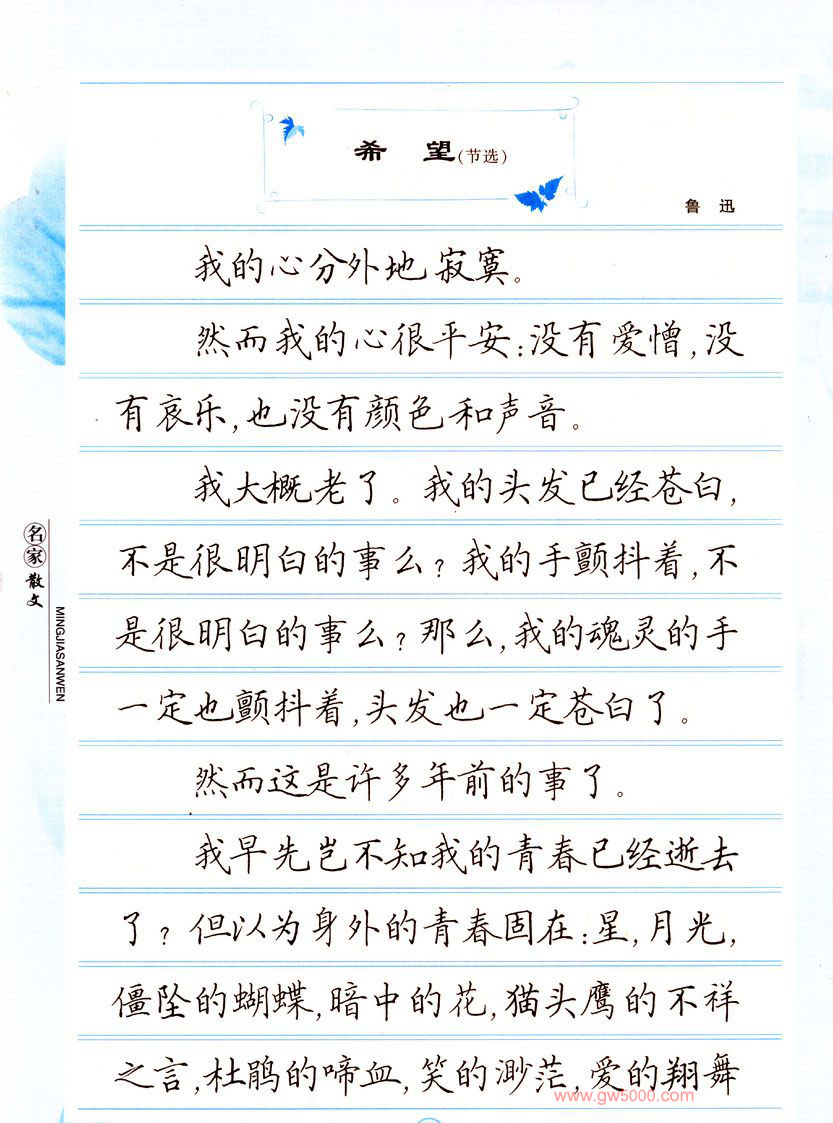 希 望(节选)
鲁 迅
我的心分外地寂寞。
然而我的心很平安:没有爱憎,没
有哀乐,也没有颜色和声音。
我大概老了。我的头发已经苍白,
不是很明白的事么?我的手颤抖着,不
是很明白的事么?那么,我的魂灵的手
一定也颤抖着,头发也一定苍白了。
然而这是许多年前的事了。
我早先岂不知我的青春已经逝去
了?但以为身外的青春固在:星,月光,
僵坠的蝴蝶,暗中的花,猫头鹰的不祥
之言,杜鹃的啼血,笑的渺茫,爱的翔舞
名家散文
MINGJIASANWEN
www.gw5000.com